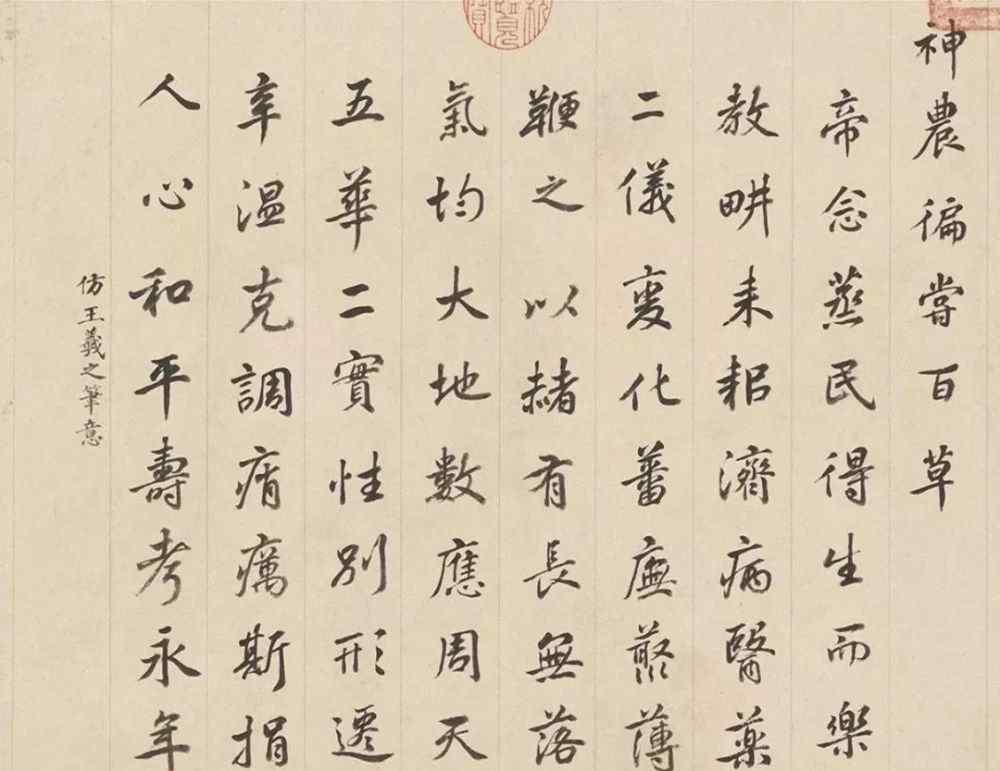 神農徧嘗百草
帝念蒸民得生而樂
教畊耒耜濟病醫藥
二儀變化蕃廡叢薄
鞭之以赭有長無落
氣均大地數應周天
五華二實性別形遷
辛温克調痟癘斯捐
人心和平壽考永年
仿王羲之筆意